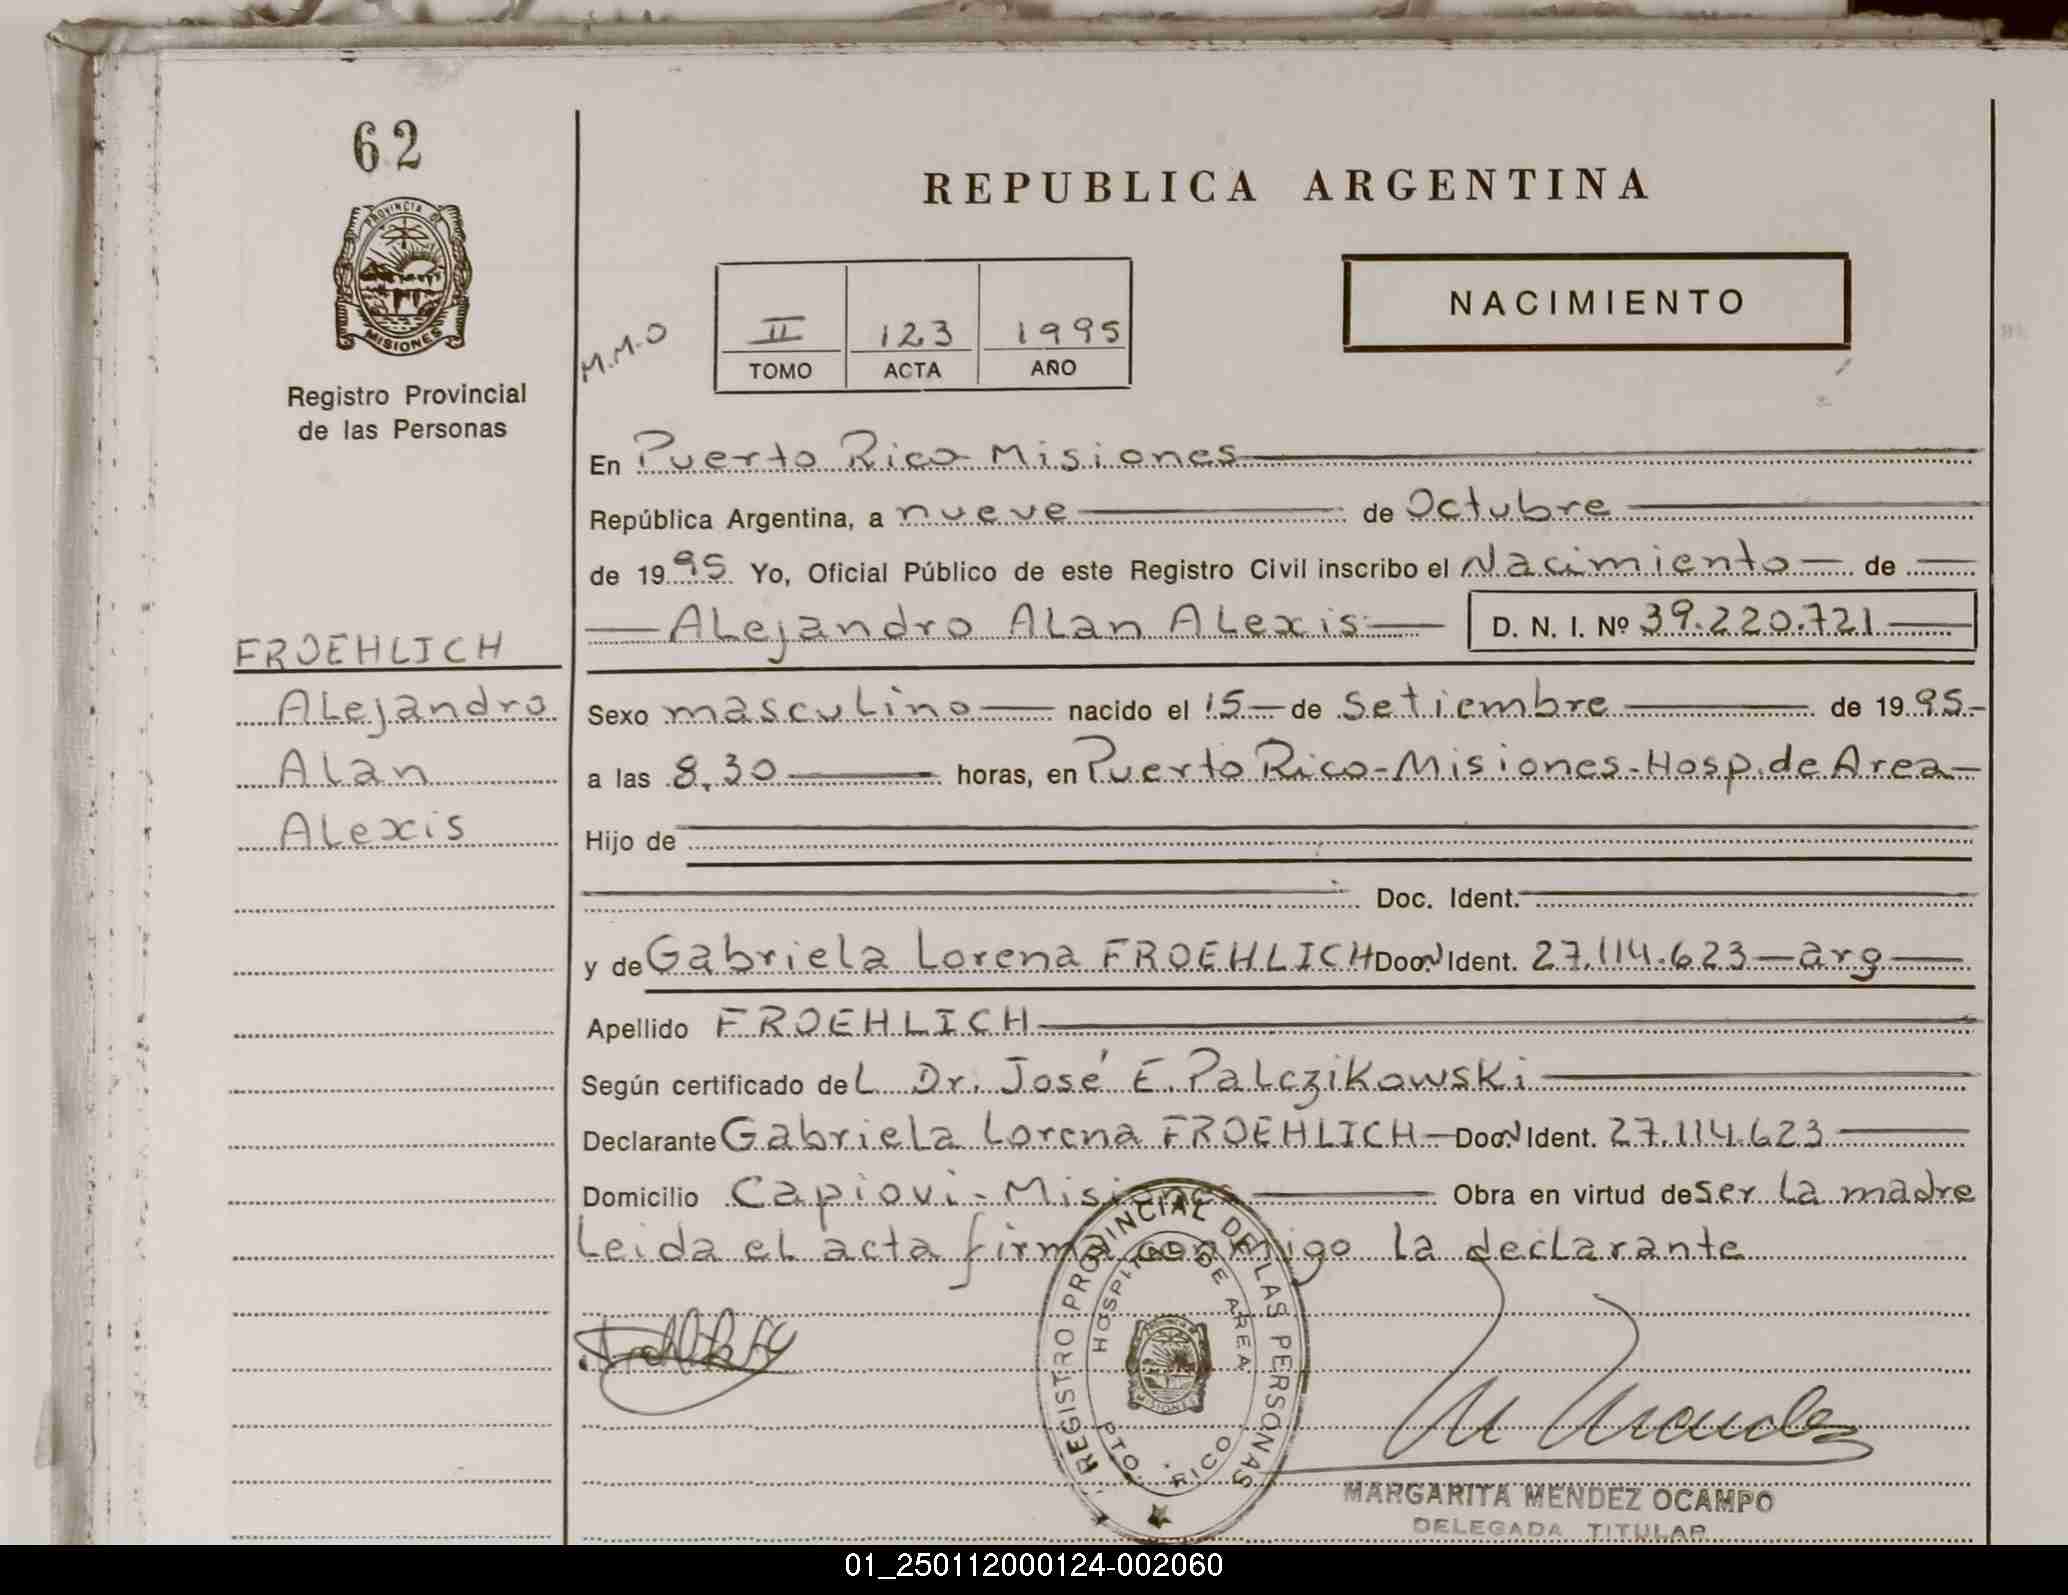 62
PROVINCIA DE
MISIONES
Registro Provincial
de las Personas
FROEHLICH
Alejandro
Alan
Alexis
REPUBLICA ARGENTINA
NACIMIENTO
M.M.O
II 123 1995
TOMO ACTA AÑO
En Puerto Rico - Misiones
República Argentina, a nueve de Octubre
de 1995 Yo, Oficial Público de este Registro Civil inscribo el Nacimiento de
Alejandro Alan Alexis D. N. I. Nº 39.220.721
Sexo masculino nacido el 15 de Setiembre de 1995
a las 8,30 horas, en Puerto Rico - Misiones - Hosp. de Area
Hijo de
Doc. Ident.
y de Gabriela Lorena FROEHLICH Doc. N Ident. 27.114.623 - arg
Apellido FROEHLICH
Según certificado del Dr. José E. Palczikowski
Declarante Gabriela Lorena FROEHLICH - Doc. N Ident. 27.114.623
Domicilio Capiovi - Misiones Obra en virtud de ser la madre
Leida el acta firma conmigo la declarante
REGISTRO PROVINCIAL DE LAS PERSONAS
HOSPITAL DE AREA
PTO. RICO
MISIONES
MARGARITA MENDEZ OCAMPO
DELEGADA TITULAR
01_250112000124-002060